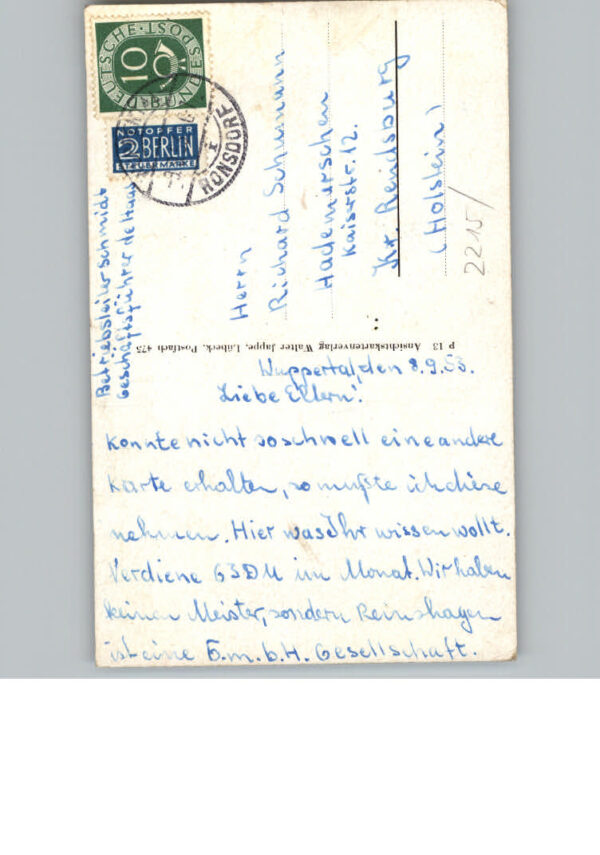 DEUTSCHE BUNDESPOST
10
NOTOPFER
2 BERLIN
STEUERMARKE
RONSDORF
Herrn
Richard Schumann
Hademarschen
Kaiserstr. 12.
Kr. Rendsburg
(Holstein)
2215/
P 13 Ansichtskartenverlag Walter Jappe, Lübeck, Postfach 475
Betriebsleiter Schmidt
Geschäftsführer de Haas
Wuppertal, den 8.9.53.
Liebe Eltern!
Konnte nicht so schnell eine andere
Karte erhalten, so mußte ich diese
nehmen. Hier was Ihr wissen wollt.
Verdiene 63 DM im Monat. Wir haben
keinen Meister, sondern Reinshagen
ist eine G.m.b.H. Gesellschaft.